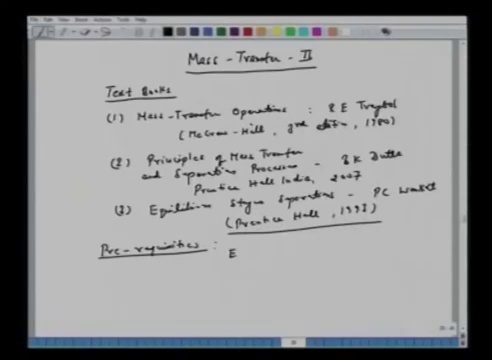 Mass - Transfer - II
Text Books
(1) Mass-Transfer Operations : R E Treybal
(McGraw-Hill, 3rd edition, 1980)
(2) Principles of Mass Transfer
and Separation Processes - B K Dutta
Prentice Hall India, 2007
(3) Equilibrium Stage Separations - PC Wankat
(Prentice Hall, 1993)
Pre-requisites :
E